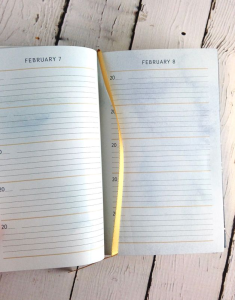 FEBRUARY 7
20
20
FEBRUARY 8
20
20
20